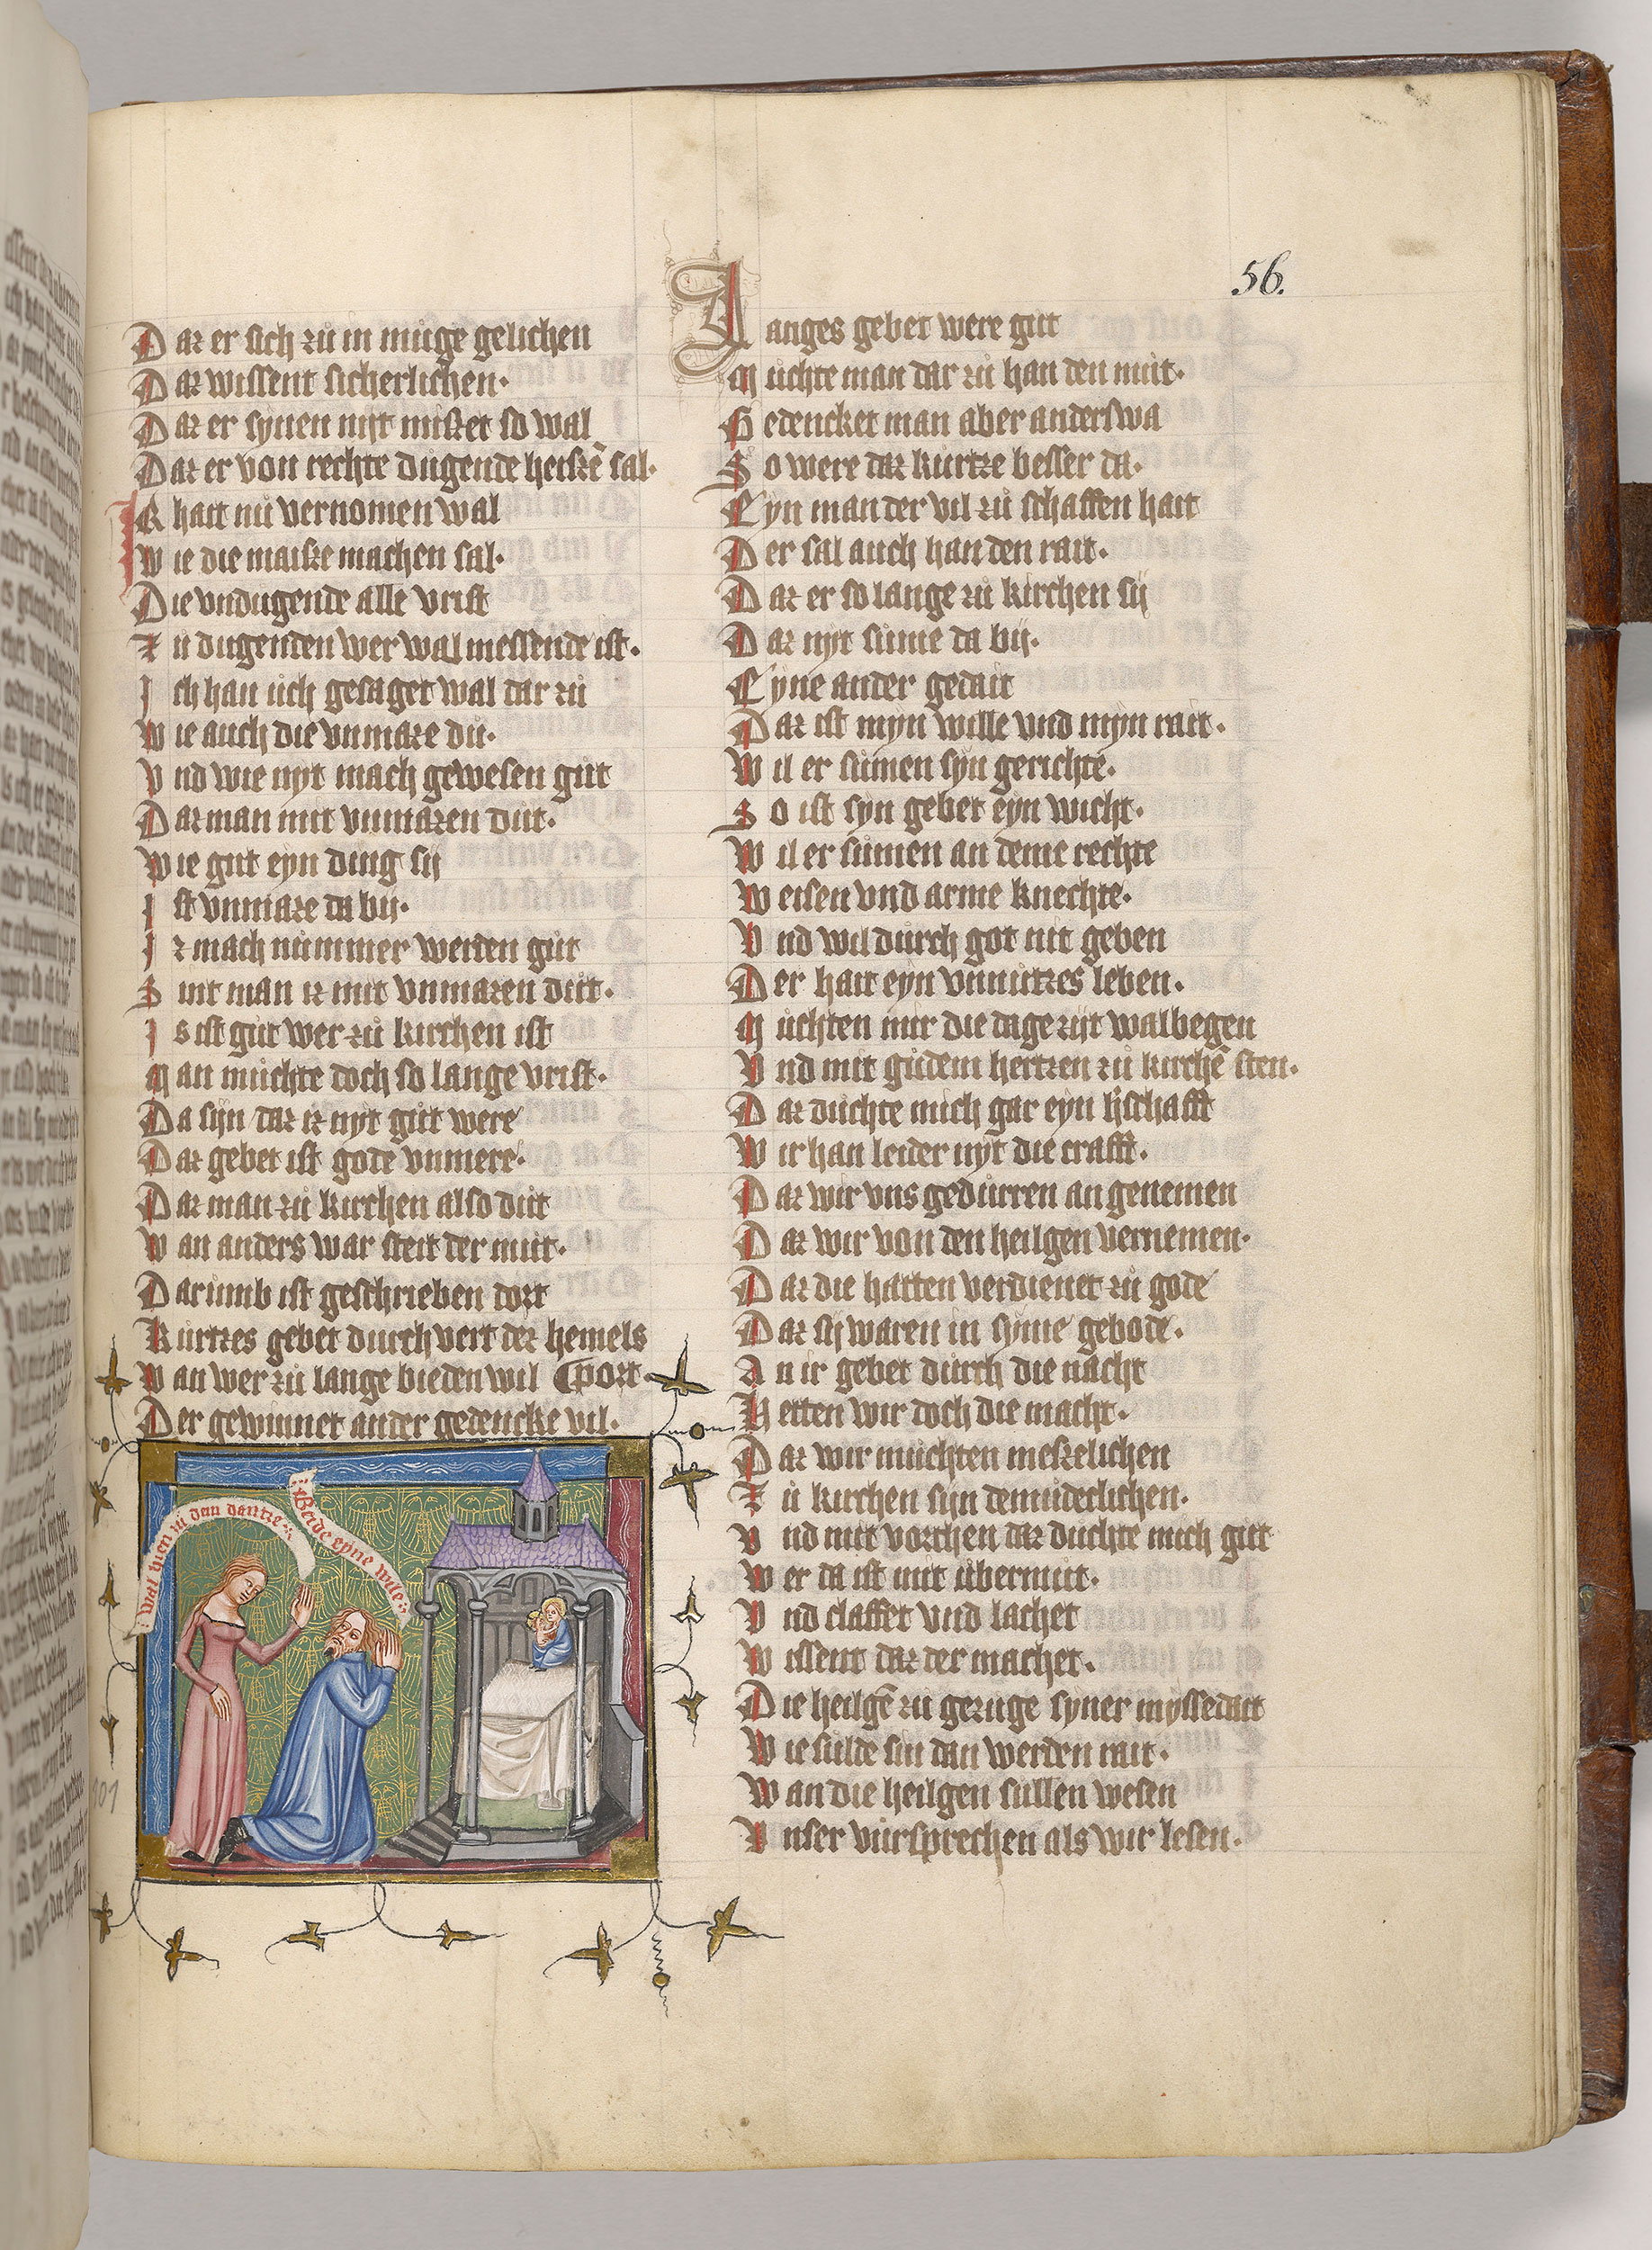 56.
Daz er sich zu in muge gelichen
Daz wissent sicherlichen·
Daz er synen nyt misset so wal
Daz er von rechte dugende heisze sal·
Ir hait nu vernomen wal
Wie die maisze machen sal·
Die undugende alle vrist
Zu dugenden wer wal messende ist·
Ich han uch gesaget wal dar zu
Wie auch die unmaze du·
Und wie nyt mach gewesen gut
Daz man mit unmazen dut·
Wie gut eyn ding sij
Ist unmaze da bij·
Iz mach nummer werden gut
Sint man iz mit unmazen dut·
Is ist gut wer zu kirchen ist
Man muchte doch so lange vrist·
Da sijn daz iz nyt gut were
Daz gebet ist gode unmere·
Daz man zu kirchen also dut
Wan anders war steit der mut·
Darumb ist geschrieben dort
Kurtzes gebet durch vert der hemels
Wan wer zu lange bieden wil port·
Der gewinnet ander gedencke vil·
wol hien zu dem dantze
Beide eyne wile
Langes gebet were gut
Muchte man dar zu han den mut·
Gedencket man aber anderswa
So were daz kurtze besser da·
Eyn man der vil zu schaffen hait
Der sal auch han den rait·
Daz er so lange zu kirchen sij
Daz nyt sume da bij·
Eyne ander gedait
Daz ist myn wille und myn rait·
Wil er sumen syn gerichte·
So ist syn gebet eyn wicht·
Wil er sumen an deme rechte
Weisen und arme knechte·
Und wil durch got nit geben
Der hait eyn unnutzes leben·
Muchten mir die dage zijt wal begen
Und mit gudem hertzen zu kirche sten·
Daz duchte mich gar eyn h'schafft
Wir han leider nyt die crafft·
Daz wir uns gedurren an genemen
Daz wir von den heilgen vernemen·
Daz die hatten verdienet zu gode
Daz sij waren in syme gebode·
An ir gebet durch die nacht
Hetten wir doch die macht·
Daz wir muchten meszelichen
Zu kirchen sijn demuderlichen·
Und mit vorchen daz duchte mich gut
Wer da ist mit ubermut·
Und claffet und lachet
Wissent daz der machet·
Die heilge zu gezuge syner myssedait
Wie sulde sin dan werden rait·
Wan die heilgen sullen wesen
Unser vursprechen als wir lesen·